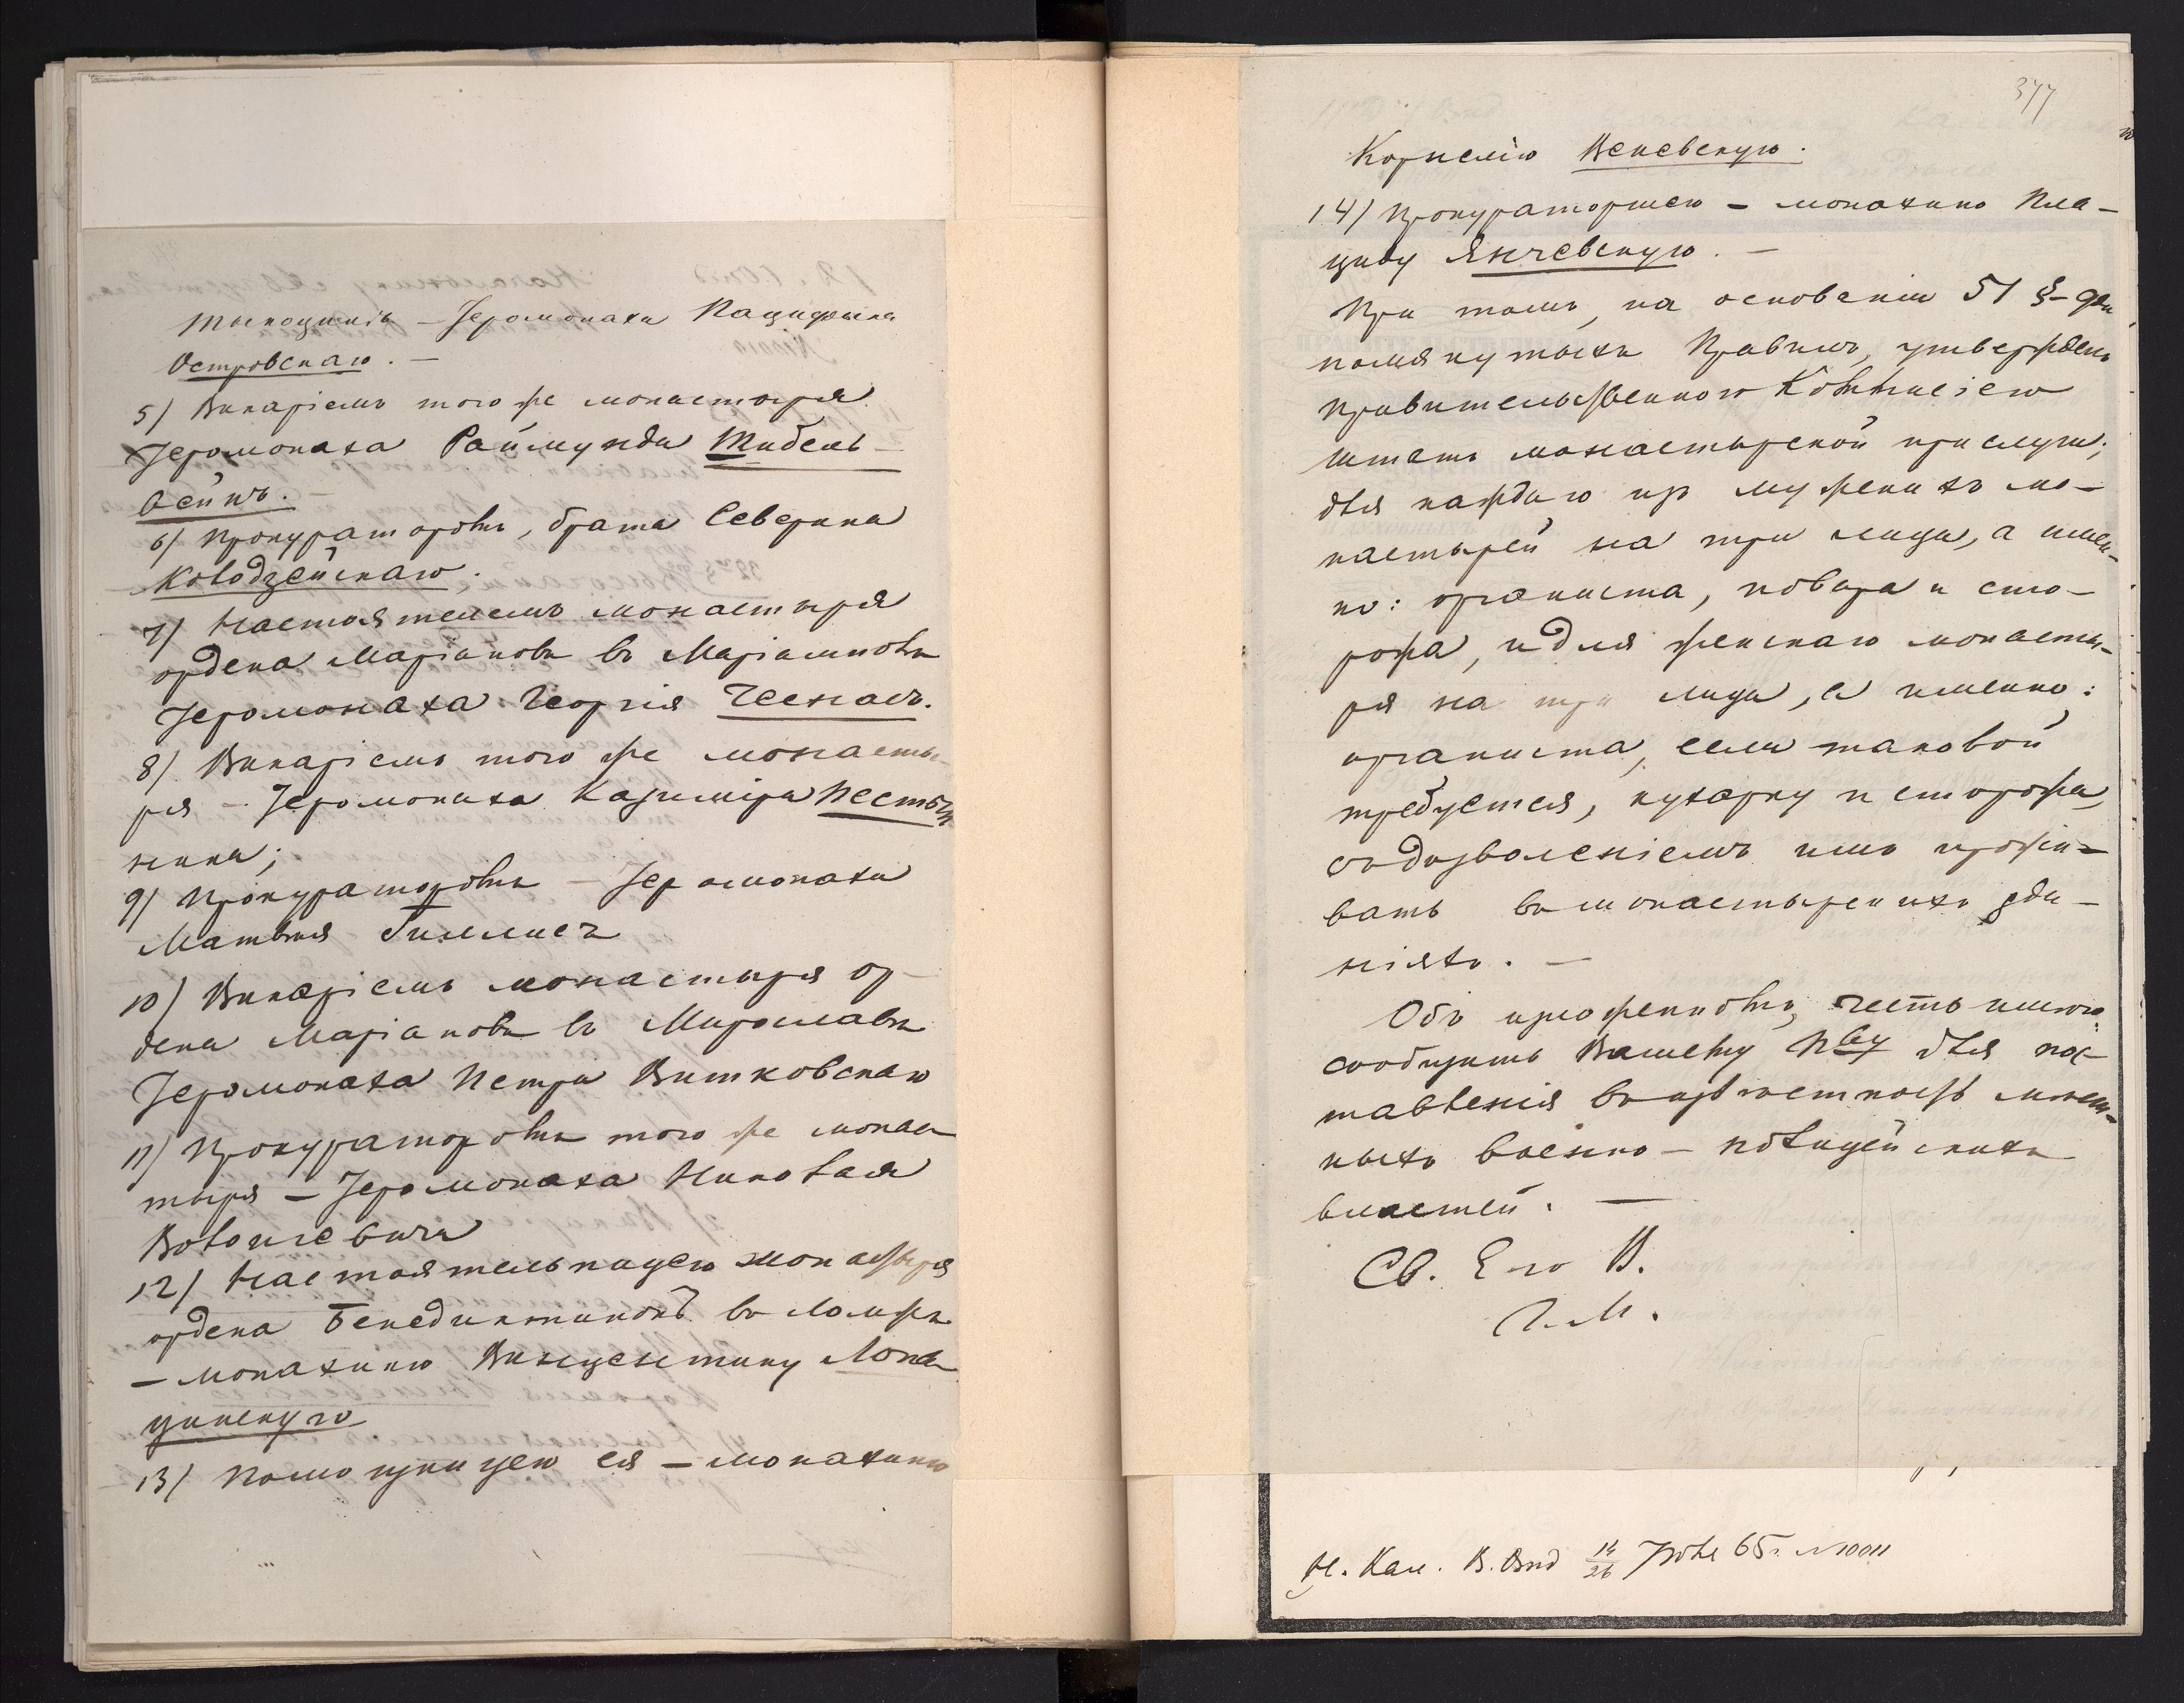 Тыкоцинѣ – Іеромонаха Пацифика
Островскаго. –
5) Викаріемъ того же монастыря
Іеромонаха Раймунда Тидель-
Осипъ.
6) Прокураторомъ, брата Северина
Колодзейскаго;
7) Настоятелемъ монастыря
ордена Маріановъ въ Маріамполѣ
Іеромонаха Георгія Чеснасъ.
8) Викаріемъ того же монасты-
ря – Іеромонаха Казиміра
ника;
9) Прокураторомъ – Іеромонаха
Матвѣя
10) Викаріемъ монастыря ор-
дена Маріановъ въ Мирославѣ
Іеромонаха Петра Витковскаго
11) Прокураторомъ того же монас
тыря – Іеромонаха Николая
12) Настоятельницею монастыря
ордена Бенедиктинокъ въ Ломжѣ
– монахиню Винцентину Лопа
цинскую
13) Помощницею ея – монахиню
377
Корнелію
14) Прокураторшею – монахиню Пла-
циду Янчевскую. –
При томъ, на основаніи 51 §
помянутыхъ Правилъ, утвержденъ
Правительственною Коммисіею
штатъ монастырской прислуги;
для каждаго изъ мужскихъ мо-
настырей на три лица, а имен-
но: органиста, повара и сто-
рожа, и для женскаго монасты-
ря на три лица, а именно:
органиста, если таковой
требуется, кухарку и сторожа,
съ дозволеніемъ имъ прожи-
вать въ монастырскихъ зда-
ніяхъ. –
Объ изложенномъ, честь имѣю
сообщить Вашему Пву для пос-
тавленія въ извѣстность мѣст-
ныхъ военно – полицейскихъ
властей. –
Св. Е го В.
Г. М.
Н. Кал. В. Отд 14/26 Іюля 65г. № 10011